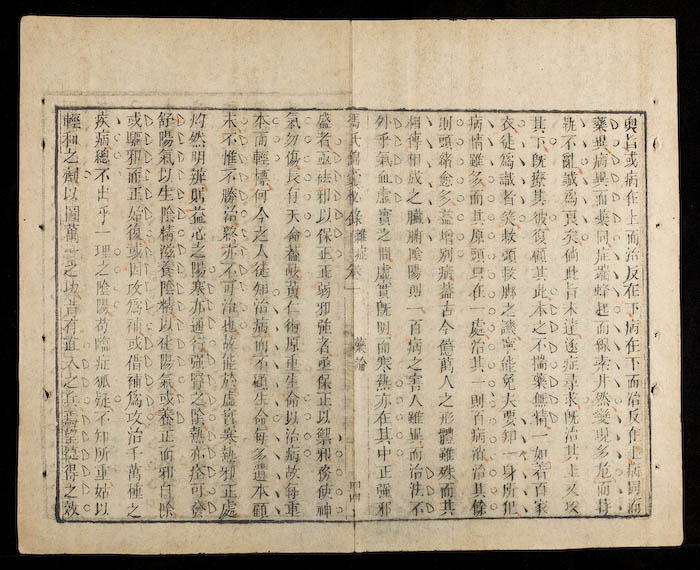 奧旨或病在上而治反在下病在下而治反在上病同而
藥異病異而藥同症端蜂起而線索井然變現多危而將
執不亂誠為真矣倘此旨未達逐症尋求既治其上又攻
其下既療其彼復顧其此本之不揣藥無精一如著百家
衣徒為識者笑救頭救腳之譏寧能免夫要知一身所犯
病情雖多而其原頭只在一處治其一則百病消治其餘
則頭緒愈多益增別病蓋古今億萬人之形體雖殊而其
相傳相成之臟腑陰陽則一百病之害人雖異而治法不
外乎氣血虛實之間虛實既明而寒熱亦在其中正強邪
盛者亟祛邪以保正正弱邪強者亟保正以禦邪務使神
氣勿傷長有天命蓋岐黃仁術原重生命以治病故每重
本而輕標何今之人徒知治病而不顧生命每多遺本顧
末不惟不勝治終亦不可治也故能於虛實寒熱邪正處
灼然明辨則益心之陽寒亦通行強腎之陰熱亦痊可發
舒陽氣以生陰精滋養陰精以化陽氣或養正而邪自除
或驅邪而正始復或因攻為補或借補為攻治千萬種之
疾病總不出乎一理之陰陽苟臨症狐疑不知所重姑以
輕和之劑以圖萬一之功昔有直入之兵焉望捷得之效
馮氏錦囊秘錄 雜症 卷一 藥論